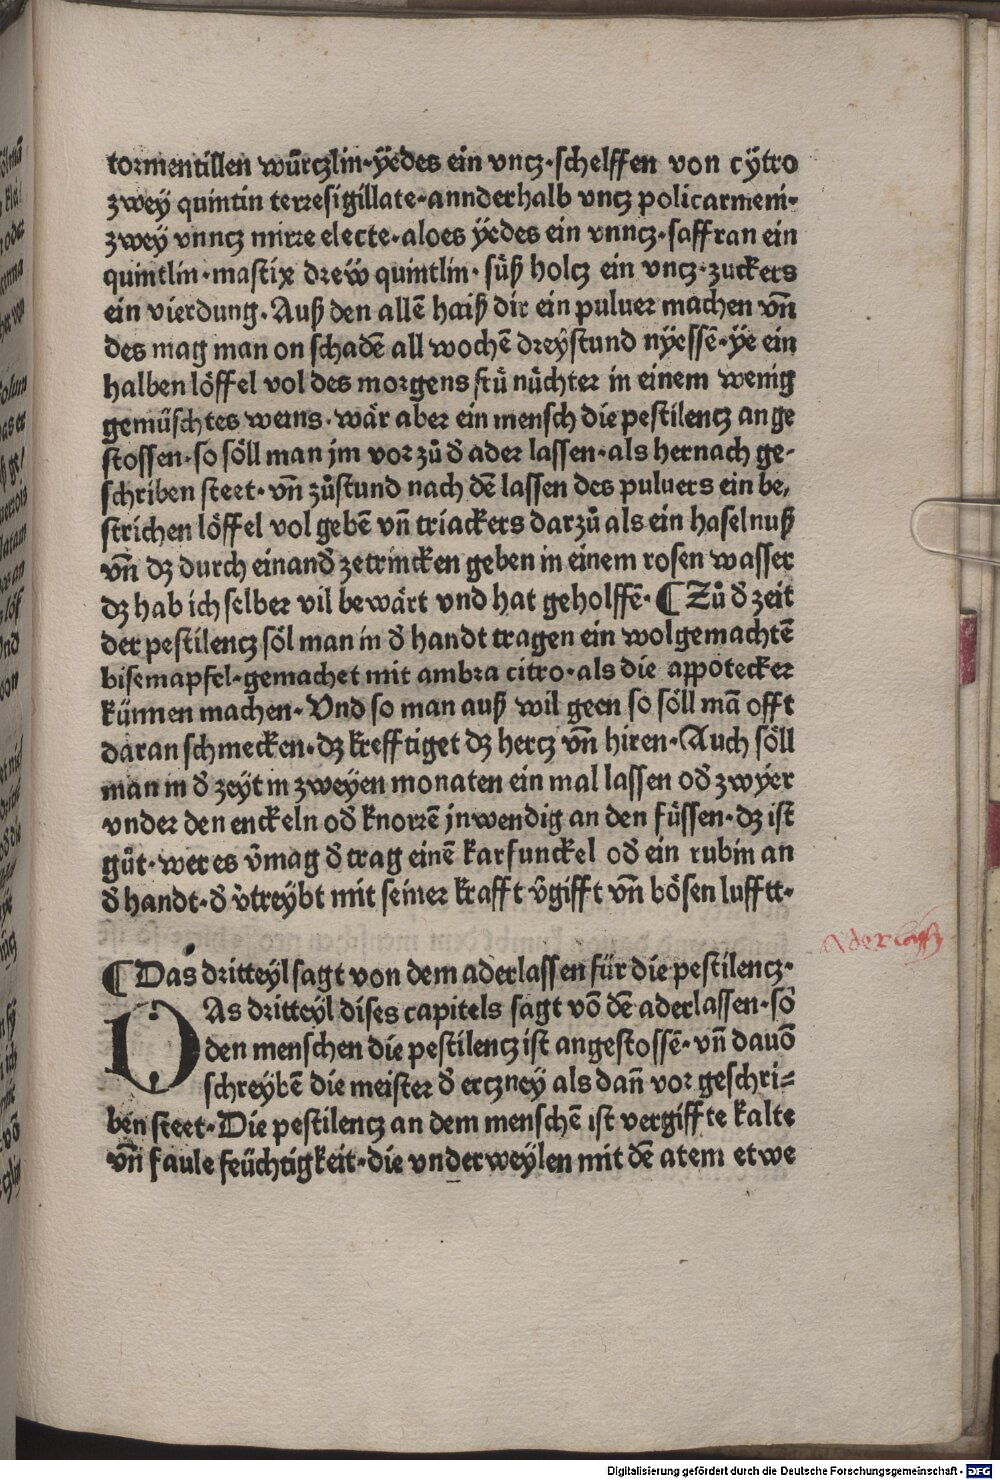 tormentillen wűrczlin·ÿedes ein vncz·schelffen von cÿtro
zwey quintin terresigillate·annderhalb vncz policarmeni·
zwey vnncz mirre electe·aloes ÿedes ein vnncz·saffran ein
quintlin·mastix dreẅ quintlin·süß holcz ein vncz·zuckers
ein vierdung·Auß den allē haiß dir ein puluer machen vn̄
des mag man on schadē all wochē dreÿstund nÿessē·ÿe ein
halben löffel vol des morgens frü nüchter in einem wenig
gemüschtes weins·wär aber ein mensch die pestilencz ange
stossen·so söll man jm vor zů d̄ ader lassen·als hernach ge-
schriben steet·vn̄ zůstund nach dē lassen des puluers ein be,
strichen löffel vol gebē vn̄ triackers darzů als ein haselnuß
vn̄ dz durch einand̄ zetrincken geben in einem rosen wasser
dz hab ich selber vil bewärt vnd hat geholffē·¶Zů d̄ zeit
der pestilencz söl man in d̄ handt tragen ein wolgemachtē
bisemapfel·gemachet mit ambra citro·als die appotecker
künnen machen·Vnd so man auß wil geen so söll mā offt
daran schmecken·dz krefftiget dz hercz vn̄ hiren·Auch söll
man in d̄ zeÿt in zweÿen monaten ein mal lassen od̄ zwÿer
vnder den enckeln od̄ knorrē jnwendig an den füssen·dz ist
gůt·wer es v̄mag d̄ trag einē karfunckel od̄ ein rubin an
d̄ handt·d̄ v̄treÿbt mit seiner krafft v̄gifft vn̄ bösen lufftt·
aderlassz
¶Das dritteÿl sagt von dem aderlassen für die pestilencz·
DAs dritteÿl dises capitels sagt vō dē aderlassen·so
den menschen die pestilencz ist angestossē·vn̄ dauō
schreÿbē die meister d̄ ercznеÿ als dan̄ vor geschri=
ben steet·Die pestilencz an dem menschē ist vergiffte kalte
vn̄ faule feüchtigkeit·die vnderweÿlen mit dē atem etwe
Digitalisierung gefördert durch die Deutsche Forschungsgemeinschaft - DFG